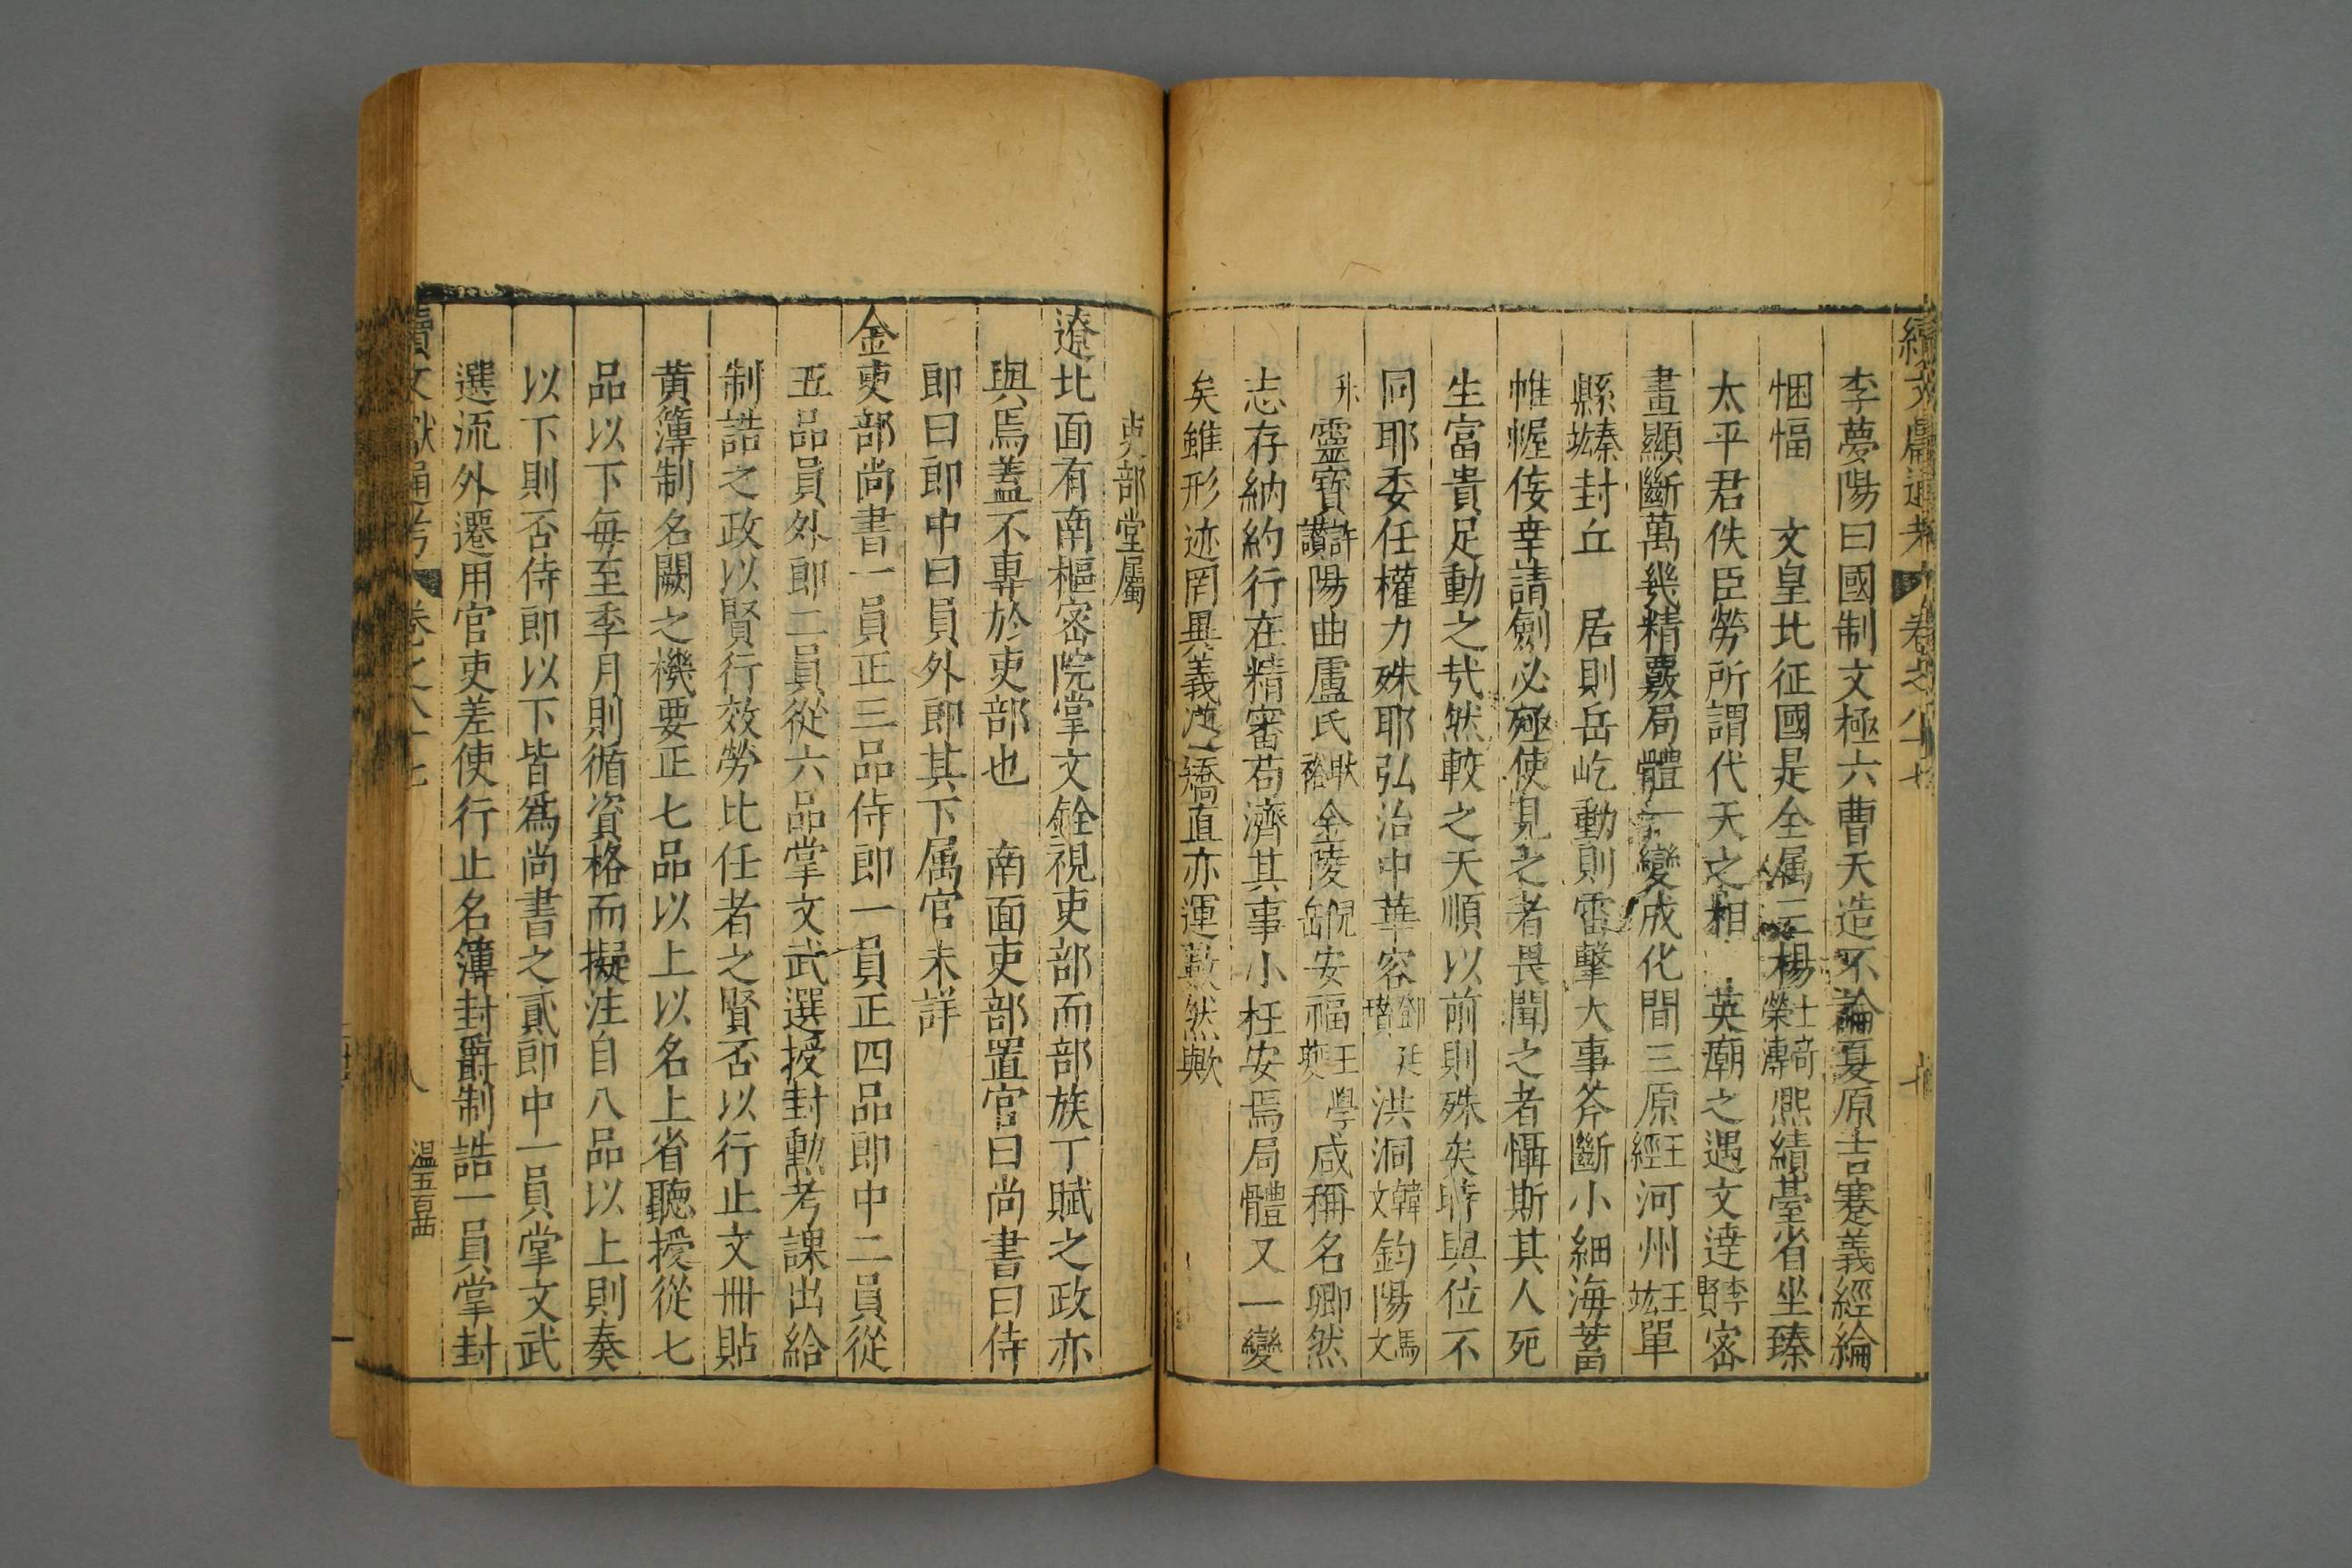 續文獻通考 卷之八十七
李夢陽曰國制文極六曹天造不論夏原吉蹇義經綸
悃愊 文皇北征國是全属三楊士奇榮溥熙績臺省坐臻
太平君佚臣勞所謂代天之相 英廟之遇文達李賢密
畫顯斷萬幾精覈局體一變成化間三原王經河州王竑單
縣秦竑封丘 居則岳屹動則雷擊大事斧斷小細海蓄
帷幄侫幸請劍必殛使見之者畏聞之者懾斯其人死
生富貴足動之㢤然較之天順以前則殊矣時與位不
同耶委任權力殊耶弘治中華容鄧廷瓚洪洞韓文鈞陽馬文
升靈寶許讚陽曲盧氏耿裕金陵倪岳安福王學夔咸稱名卿然
志存納約行在精審苟濟其事小枉安焉局體又一變
矣雖形迹罔異義隨矯直亦運數然歟
吏部堂屬
遼北面有南樞密院掌文銓視吏部而部族丁賦之政亦
與焉蓋不專於吏部也 南面吏部置官曰尚書曰侍
郎曰郎中曰員外郎其下属官未詳
金吏部尚書一員正三品侍郎一員正四品郎中二員從
五品員外郎二員從六品掌文武選授封勳考課出給
制誥之政以賢行效勞比任者之賢否以行止文冊貼
黃簿制名闕之機要正七品以上以名上省聽授從七
品以下每至季月則循資格而擬注自八品以上則奏
以下則否侍郎以下皆爲尚書之貳郎中一員掌文武
選流外遷用官吏差使行止名簿封爵制誥一員掌封
續文獻通考 卷之八十七 八 温五百